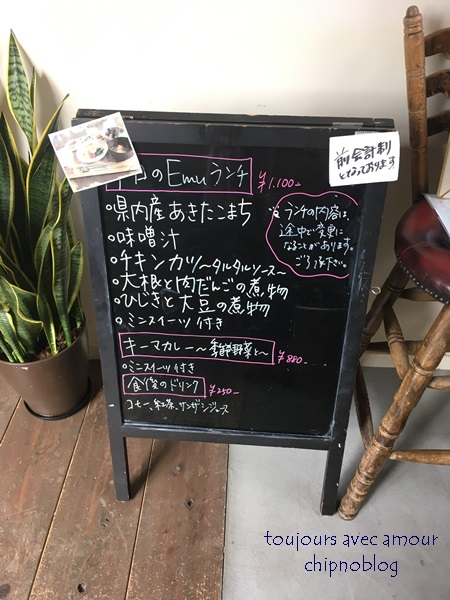 今日のEmuランチ ¥1.100-
前会計制
となっております
。県内産あきたこまち
。味噌汁
。チキンカツ〜タルタルソース〜
。大根と肉だんごの煮物
。ひじきと大豆の煮物
。ミニスイーツ付き
ランチの内容は、
途中で変更に
なることがあります。
ご了承下さい。
キーマカレー〜季節野菜と〜 ¥880-
。ミニスイーツ付き
食後のドリンク ¥250-
コーヒー、紅茶、サンザシジュース
toujours avec amour
chipnoblog